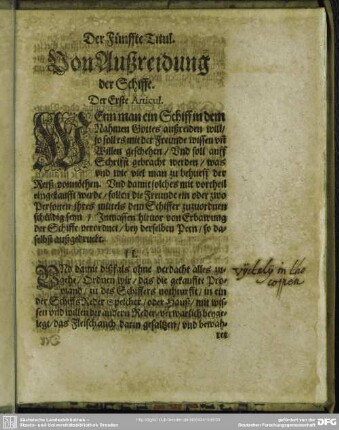 Der Fünffte Titul.
Von Außreidung
der Schiffe.
Der Erste Articul.
WEnn man ein Schiff in dem
Nahmen Gottes außreiden will/
so soll es mit der Freunde wissen vñ
Willen geschehen/ Vnd soll auff
Schrifft gebracht werden/ was
vnd wie viel man zu behueff der
Reiß vonnöhten. Vnd damit solches mit vortheil
eingekaufft werde/ sollen die Freunde ein oder zwo
Personen ihres mittels dem Schiffer zuordnen
schüldig seyn/ Inmassen hievor von Erbawung
der Schiffe verordnet/ bey derselben Peen/ so da-
selbst außgedruckt.
II.
VNd damit dißfals ohne verdacht alles zu-
gehe/ Ordnen wir/ das die gekauffte Pro-
viand/ zu des Schiffers notturfft, in ein
der Schiffs Reder Speicher/ oder Hauß/ mit wis-
sen vnd willen der andern Reder, verwarlich beyge-
legt/ das Fleisch auch darin gesaltzen/ vnd bewah-
ret
in the